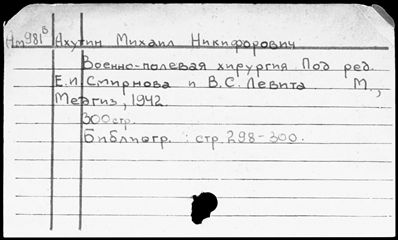 Нт981 в Ахутин Михаил Никифорович
Военно-полевая хирургия Под ред.
Е.И. Смирнова и В.С. Левита М.,
Медгиз, 1942.
300 стр.
Библиогр.: стр. 298-300.